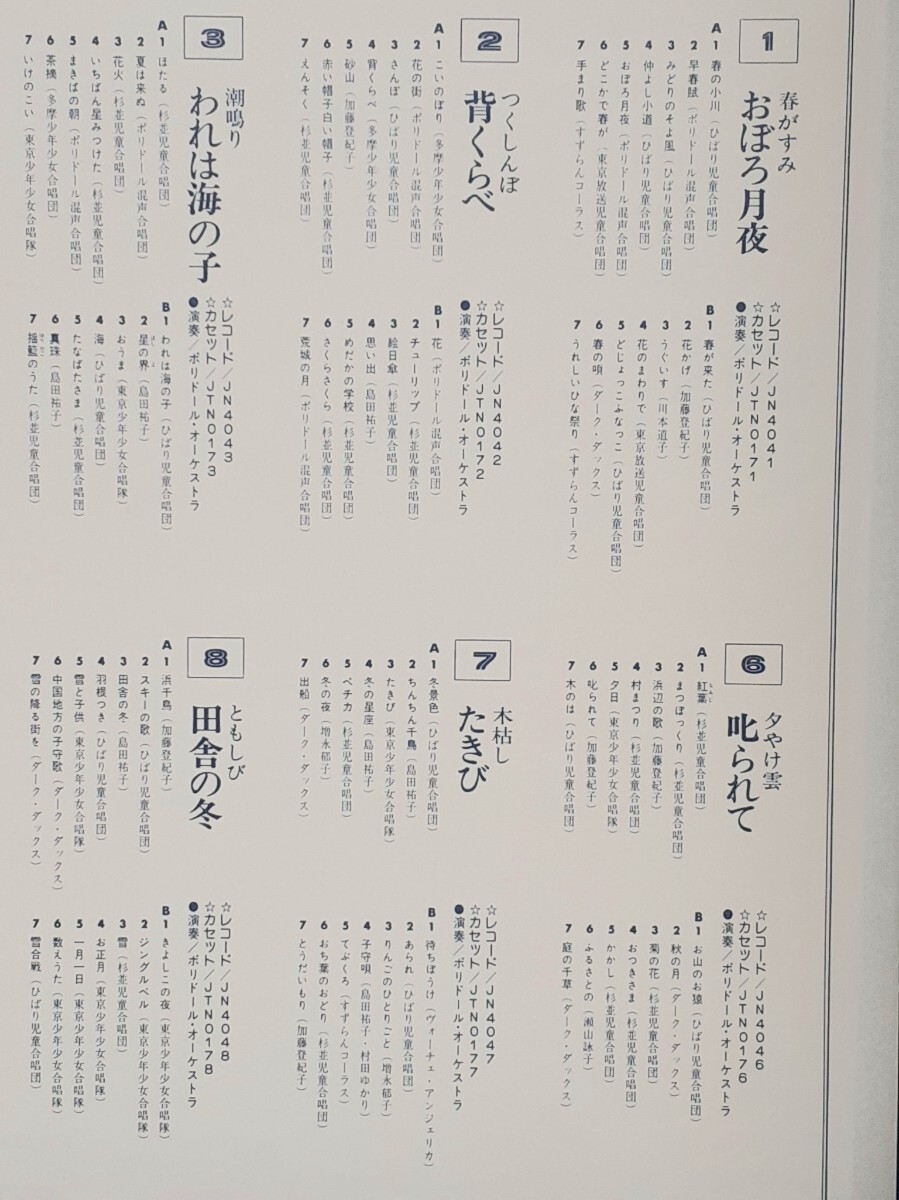 1
春がすみ
おぼろ月夜
A
1 春の小川(ひばり児童合唱団)
2 早春賦(ポリドール混声合唱団)
3 みどりのそよ風(ひばり児童合唱団)
4 仲よし小道(ひばり児童合唱団)
5 おぼろ月夜(ポリドール混声合唱団)
6 どこかで春が(東京放送児童合唱団)
7 手まり歌(すずらんコーラス)
☆レコード/JN4041
☆カセット/JTN0171
●演奏/ポリドール・オーケストラ
B
1 春が来た(ひばり児童合唱団)
2 花かげ(加藤登紀子)
3 うぐいす(川本道子)
4 花のまわりで(東京放送児童合唱団)
5 どじょっこふなっこ(ひばり児童合唱団)
6 春の唄(ダーク・ダックス)
7 うれしいひな祭り(すずらんコーラス)
2
つくしんぼ
背くらべ
A
1 こいのぼり(多摩少年少女合唱団)
2 花の街(ポリドール混声合唱団)
3 さんぽ(ひばり児童合唱団)
4 背くらべ(多摩少年少女合唱団)
5 砂山(加藤登紀子)
6 赤い帽子白い帽子(杉並児童合唱団)
7 えんそく(杉並児童合唱団)
☆レコード/JN4042
☆カセット/JTN0172
●演奏/ポリドール・オーケストラ
B
1 花(ポリドール混声合唱団)
2 チューリップ(杉並児童合唱団)
3 絵日傘(杉並児童合唱団)
4 思い出(島田祐子)
5 めだかの学校(杉並児童合唱団)
6 さくらさくら(杉並児童合唱団)
7 荒城の月(ポリドール混声合唱団)
3
潮鳴り
われは海の子
A
1 ほたる(杉並児童合唱団)
2 夏は来ぬ(ポリドール混声合唱団)
3 花火(杉並児童合唱団)
4 いちばん星みつけた(杉並児童合唱団)
5 まきばの朝(ポリドール混声合唱団)
6 茶摘(多摩少年少女合唱団)
7 いけのこい(東京少年少女合唱隊)
☆レコード/JN4043
☆カセット/JTN0173
●演奏/ポリドール・オーケストラ
B
1 われは海の子(ひばり児童合唱団)
2 星の界(島田祐子)
3 おうま(東京少年少女合唱隊)
4 海(ひばり児童合唱団)
5 たなばたさま(杉並児童合唱団)
6 真珠(島田祐子)
7 揺籃のうた(杉並児童合唱団)
6
夕やけ雲
叱られて
A
1 紅葉(杉並児童合唱団)
2 まつぼっくり(杉並児童合唱団)
3 浜辺の歌(加藤登紀子)
4 村まつり(杉並児童合唱団)
5 夕日(東京少年少女合唱隊)
6 叱られて(加藤登紀子)
7 木のは(ひばり児童合唱団)
☆レコード/JN4046
☆カセット/JTN0176
●演奏/ポリドール・オーケストラ
B
1 お山のお猿(ひばり児童合唱団)
2 秋の月(ダーク・ダックス)
3 菊の花(杉並児童合唱団)
4 おつきさま(杉並児童合唱団)
5 かかし(杉並児童合唱団)
6 ふるさとの(瀬山詠子)
7 庭の千草(ダーク・ダックス)
7
木枯し
たきび
A
1 冬景色(ひばり児童合唱団)
2 ちんちん千鳥(島田祐子)
3 たきび(東京少年少女合唱隊)
4 冬の星座(島田祐子)
5 ペチカ(杉並児童合唱団)
6 冬の夜(増永郁子)
7 出船(ダーク・ダックス)
☆レコード/JN4047
☆カセット/JTN0177
●演奏/ポリドール・オーケストラ
B
1 待ちぼうけ(ヴォーチェ・アンジェリカ)
2 あられ(ひばり児童合唱団)
3 りんごのひとりごと(増永郁子)
4 子守唄(島田祐子・村田ゆかり)
5 てぶくろ(すずらんコーラス)
6 おち葉のおどり(杉並児童合唱団)
7 とうだいもり(加藤登紀子)
8
ともしび
田舎の冬
A
1 浜千鳥(加藤登紀子)
2 スキーの歌(ひばり児童合唱団)
3 田舎の冬(島田祐子)
4 羽根つき(ひばり児童合唱団)
5 雪と子供(東京少年少女合唱隊)
6 中国地方の子守歌(ダーク・ダックス)
7 雪の降る街を(ダーク・ダックス)
☆レコード/JN4048
☆カセット/JTN0178
●演奏/ポリドール・オーケストラ
B
1 きよしこの夜(東京少年少女合唱隊)
2 ジングルベル(東京少年少女合唱隊)
3 雪(杉並児童合唱団)
4 お正月(東京少年少女合唱隊)
5 一月一日(東京少年少女合唱隊)
6 数えうた(東京少年少女合唱隊)
7 雪合戦(ひばり児童合唱団)